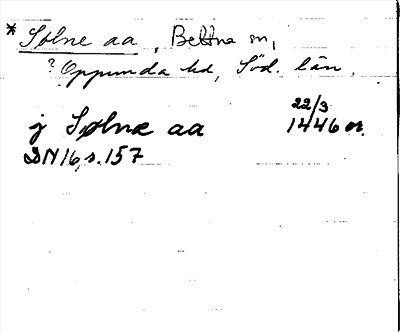 * Sølne aa, Bettna sn,
? Oppunda hd, Söd. län.
22/3
j Sølnæ aa 1446 or.
DN 16, s. 157